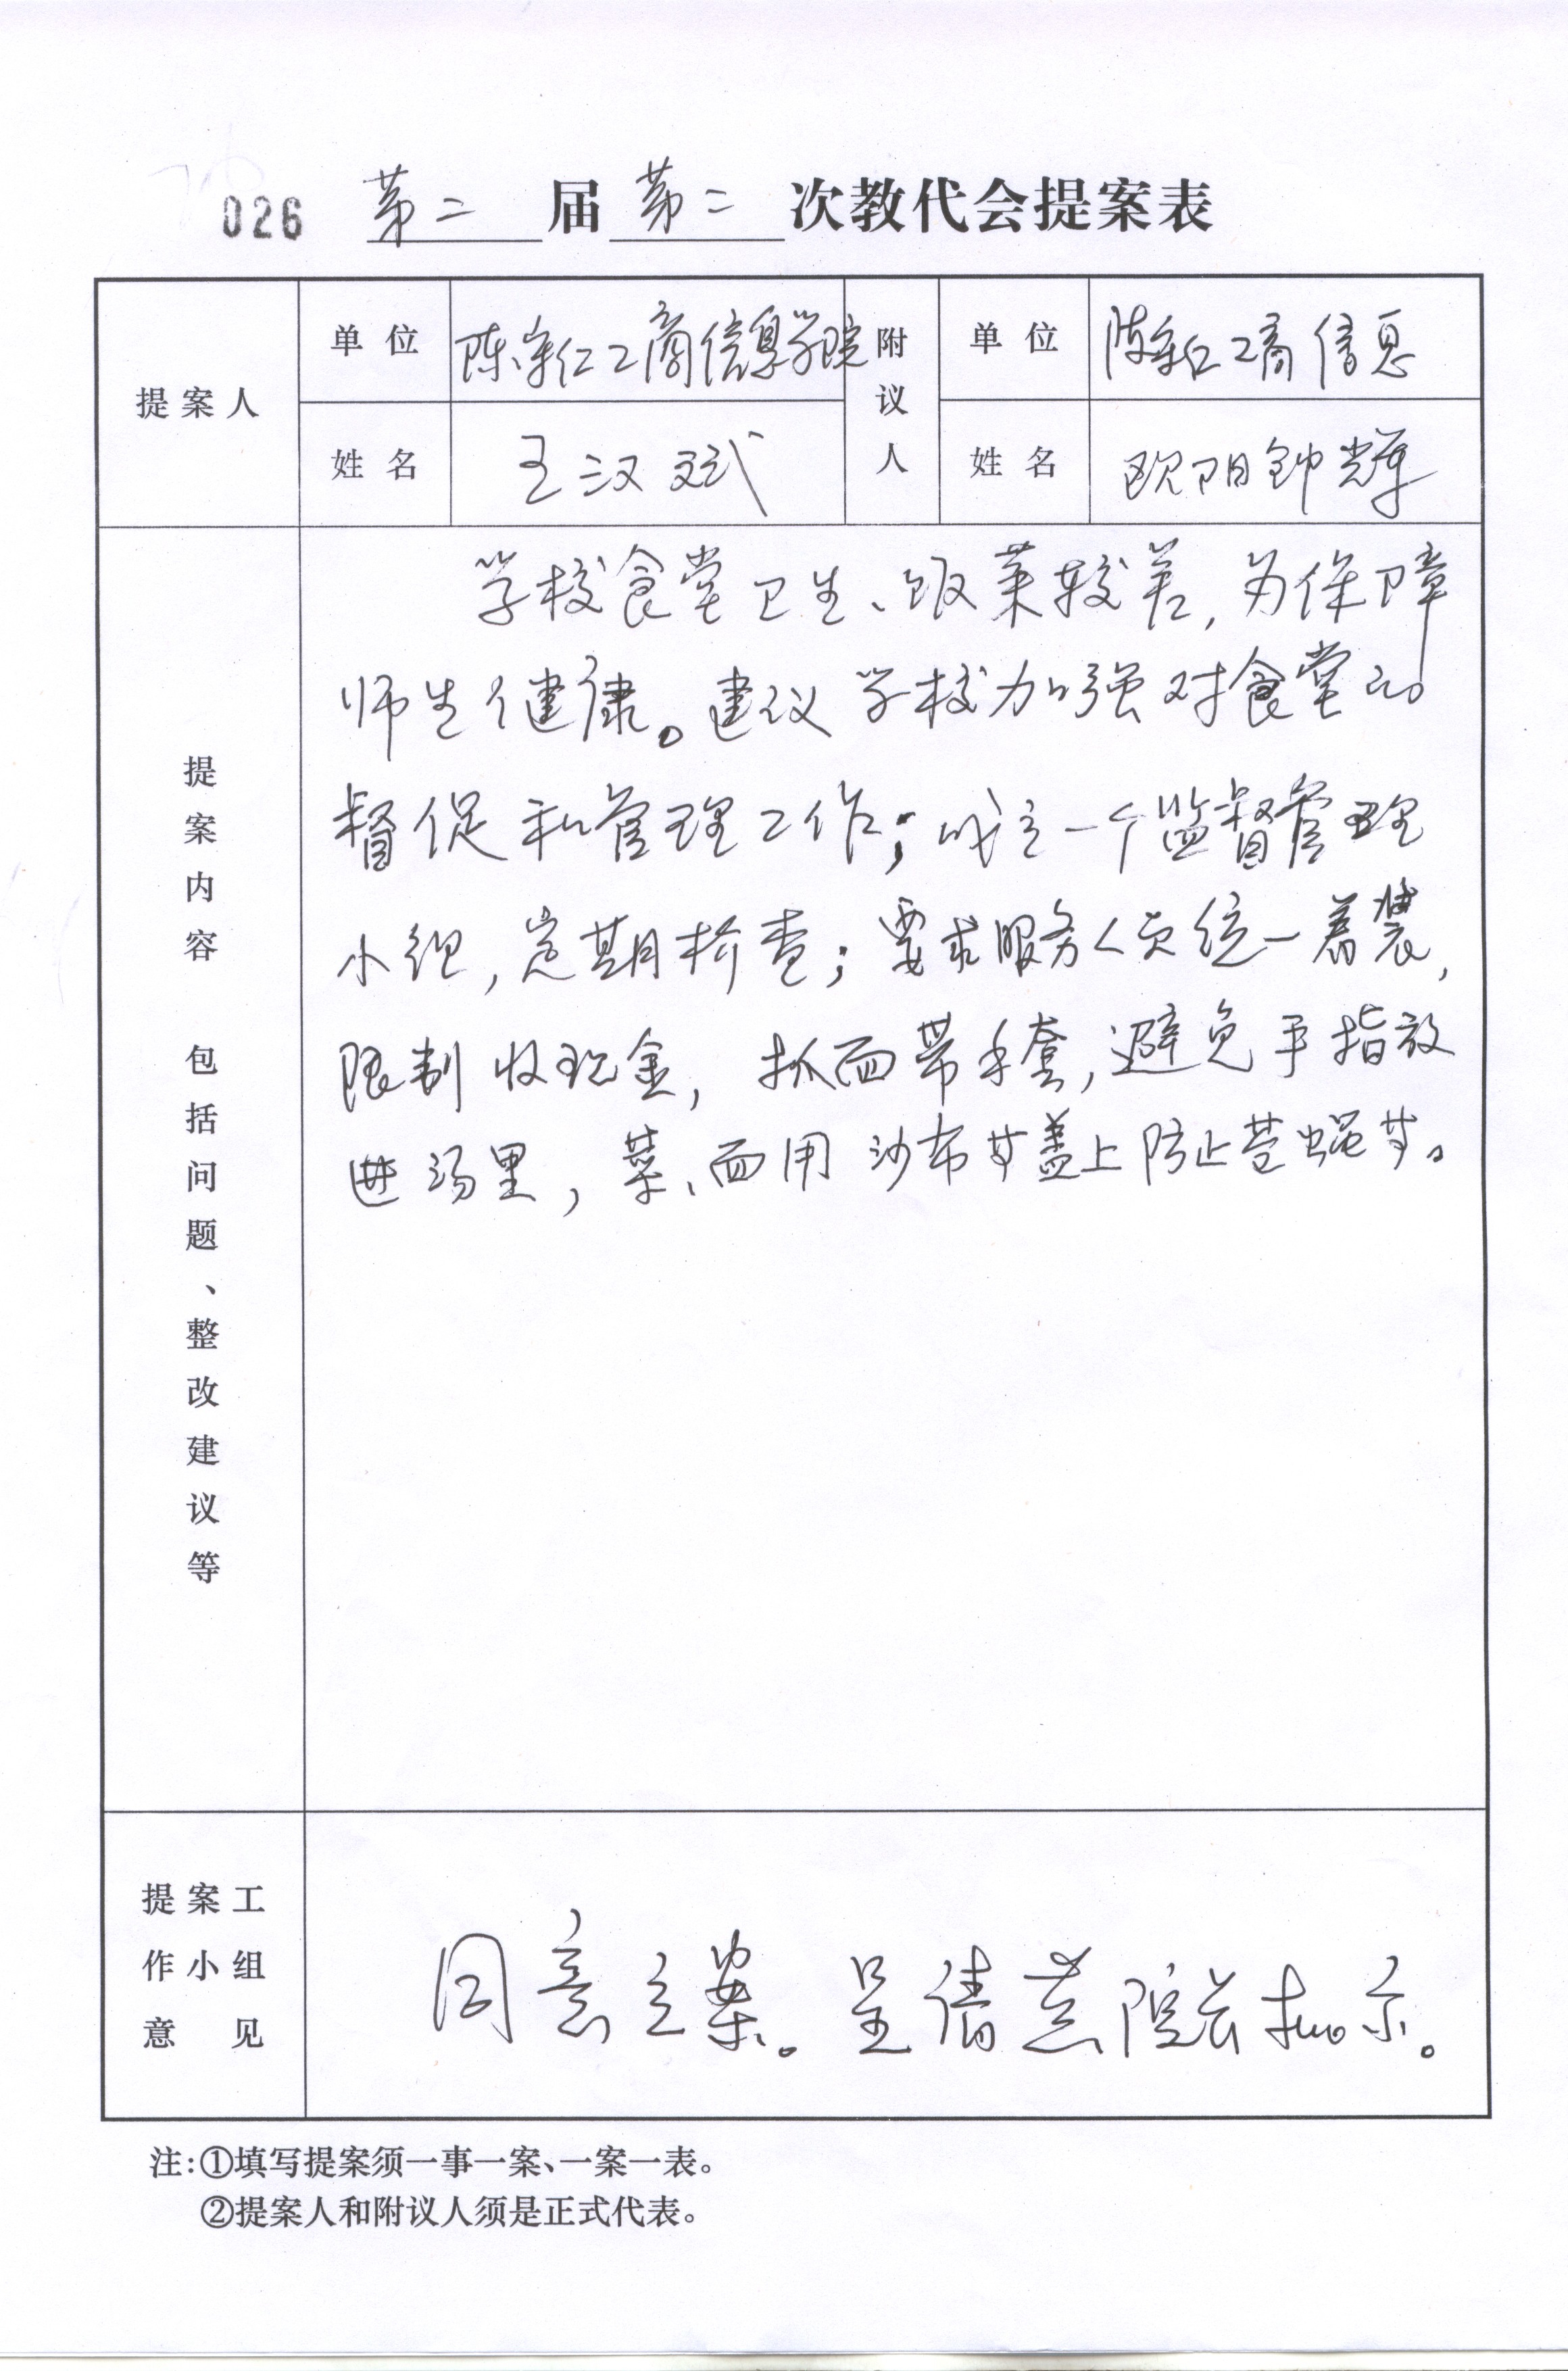 026 第二届第二次教代会提案表
提案人 单位 陈守仁工商信息学院 附议人 单位 陈守仁工商信息
姓名 王汉斌 姓名 欧阳钟辉
提案内容 包括问题、整改建议等
学校食堂卫生、饭菜较差,为保障
师生健康。建议学校加强对食堂的
督促和管理工作;成立一个监督管理
小组,定期检查;要求服务人员统一着装,
限制收现金,抓面带手套,避免手指放
进汤里,菜、面用沙布等盖上防止苍蝇等。
提案工作小组意见
同意立案。呈请黄院长批示。
注:①填写提案须一事一案、一案一表。
②提案人和附议人须是正式代表。